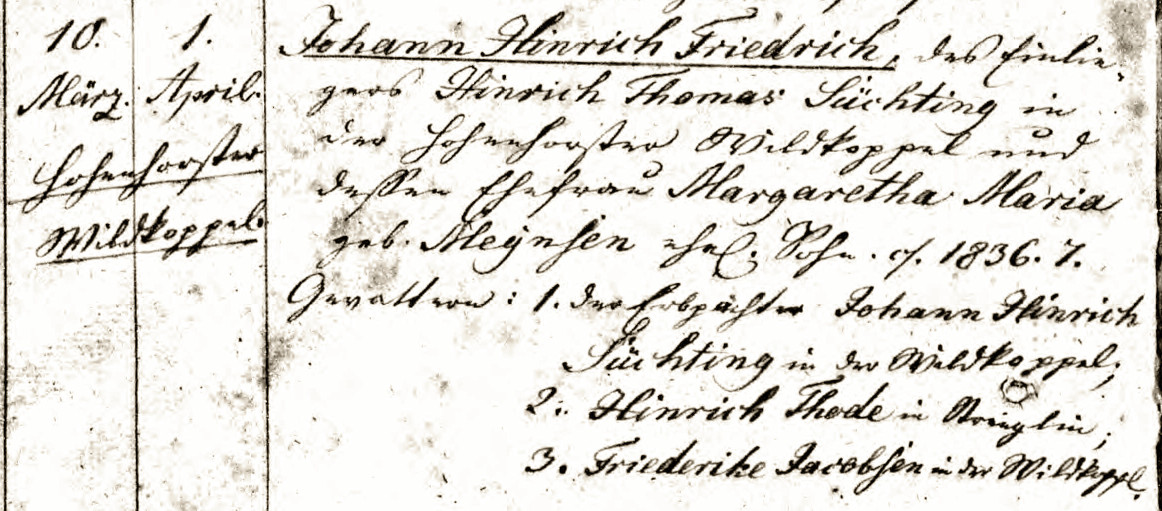 10. März. 1. April.
Hohenhorster
Wildkoppel.
Johann Hinrich Friedrich, des Einlie-
gers Hinrich Thomas Süchting in
der Hohenhorster Wildkoppel und
dessen Ehefrau Margaretha Maria
geb. Meÿnsen ehel. Sohn. cf. 1836. 7.
Gevattern: 1. der Erbpächter Johann Hinrich
Süchting in der Wildkoppel;
2. Hinrich Thode in
3. Friederike Jacobsen in der Wildkoppel.